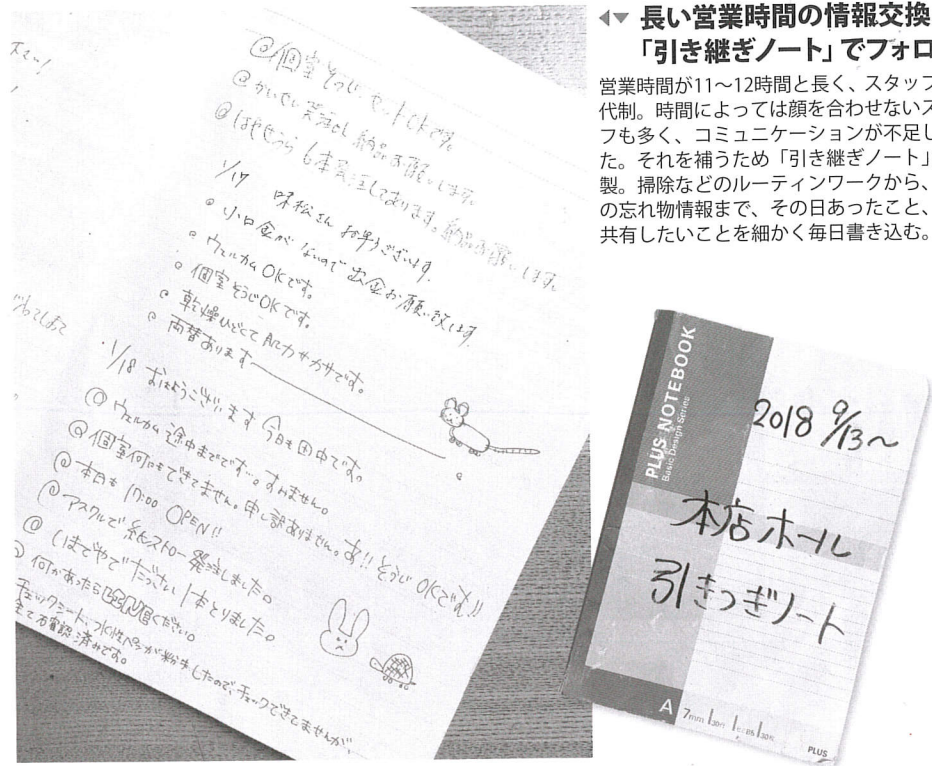 長い営業時間の情報交換
「引き継ぎノート」でフォロ
営業時間が11〜12時間と長く、スタッフ
代制。時間によっては顔を合わせないス
フも多く、コミュニケーションが不足し
た。それを補うため「引き継ぎノート」
製。掃除などのルーティンワークから、
の忘れ物情報まで、その日あったこと、
共有したいことを細かく毎日書き込む。
@個室そうじ、セットOKです。
納品お願いします。
6本発注してあります。納品お願いします。
1/17 味松さん お早うございます。
小口金がないので出金お願い致します
ウェルカムOKです。
個室そうじOKです。
乾燥ひどくて肌カサカサです。
両替あります
1/18 おはようございます 今日も田中です。
@ウェルカム途中までです…。すみません。
@個室何もできてません。申し訳ありません。あ!! そうじOKです!!
@本日も17:00 OPEN!!
@アスクルで紙ストロー発注しました。
@いまでやでだっさい1本とりました。
@何かあったらLINEください。
チェックシート、水性ペンが粉失したので、チェックできてませんが、
全て確認済みです。
PLUS NOTEBOOK
Basic Design Series
2018 9/13〜
本店ホール
引きつぎノート
A 7mm 30行 30枚
PLUS